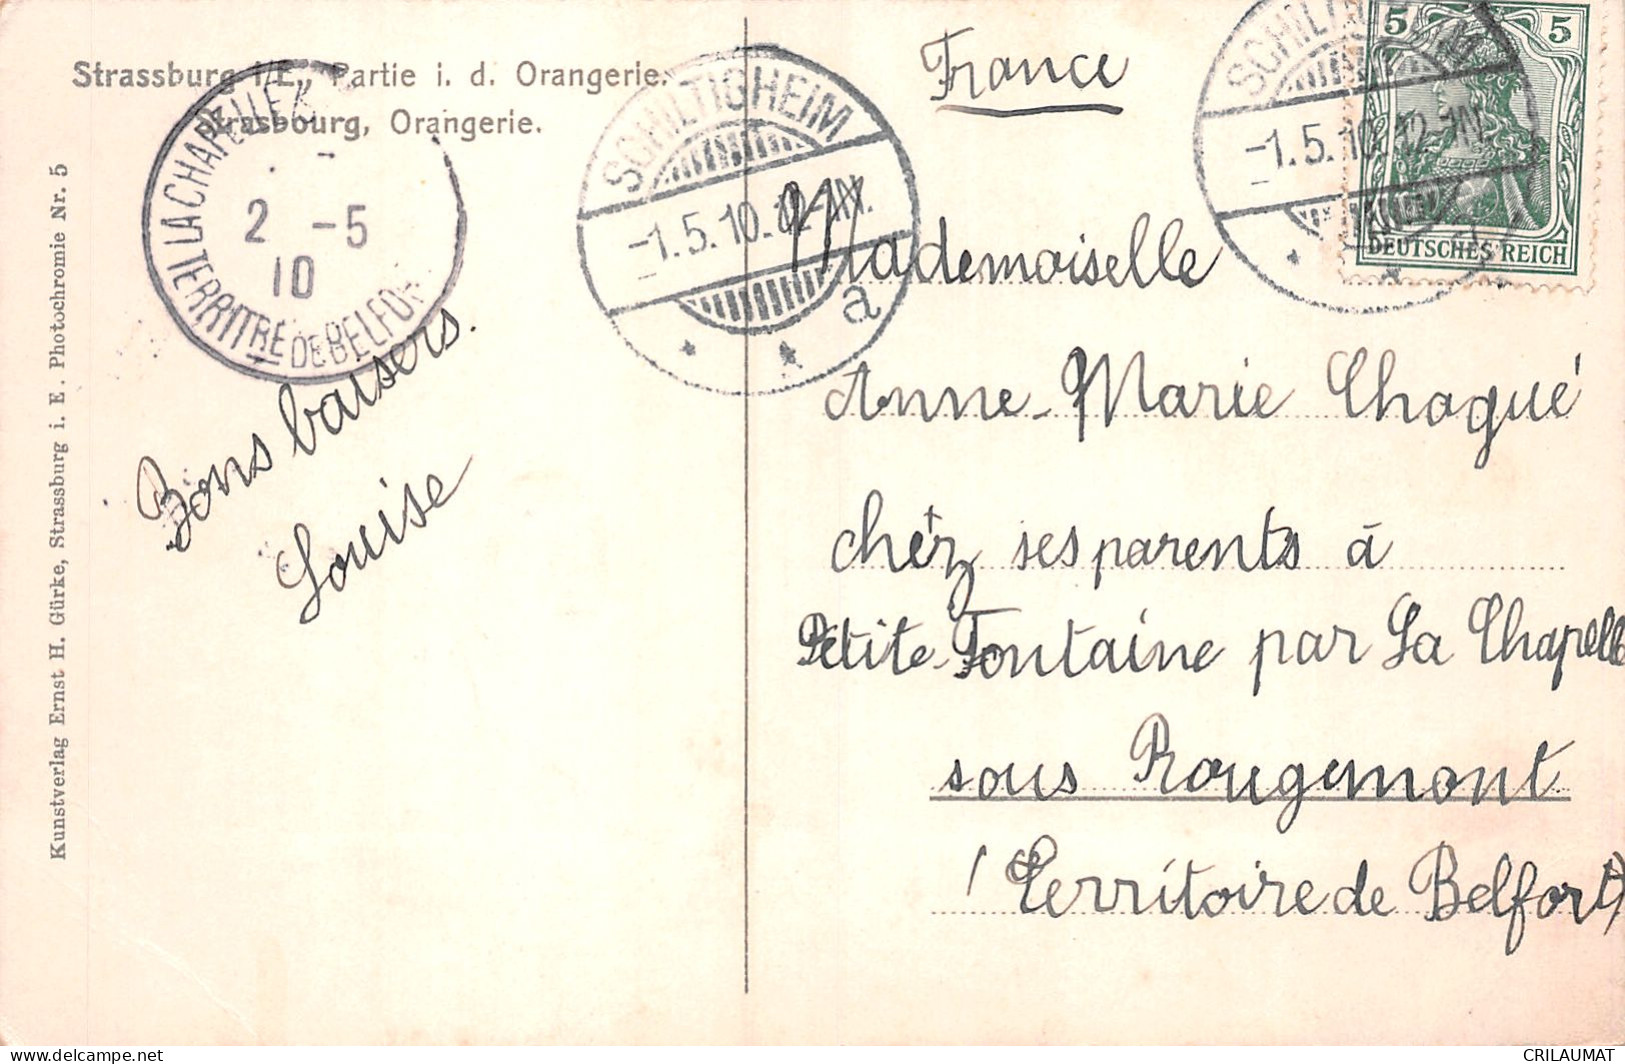 Strassburg i/E., Partie i. d. Orangerie.
Strasbourg, Orangerie.
LA CHAPELLE
TERRITRE DE BELFORT
2 -5
10
SCHILTIGHEIM
-1.5.10.12-1N.
a
France
SCHILTIGHEIM
-1.5.10.12-1N
5 5
DEUTSCHES REICH
Mademoiselle
Anne-Marie Chagué
chez ses parents à
Petite-Fontaine par La Chapelle
sous Rougemont
(Territoire de Belfort)
Bons baisers.
Louise
Kunstverlag Ernst H. Gürke, Strassburg i. E. Photochromie Nr. 5
CRILAUMAT